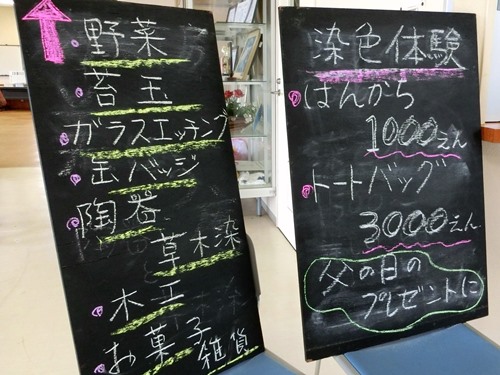 野菜
苔玉
ガラスエッチング
缶バッジ
陶器
草木染
木工
お菓子
雑貨
染色体験
はんから
1000えん
トートバッグ
3000えん
父の日の
プレゼントに